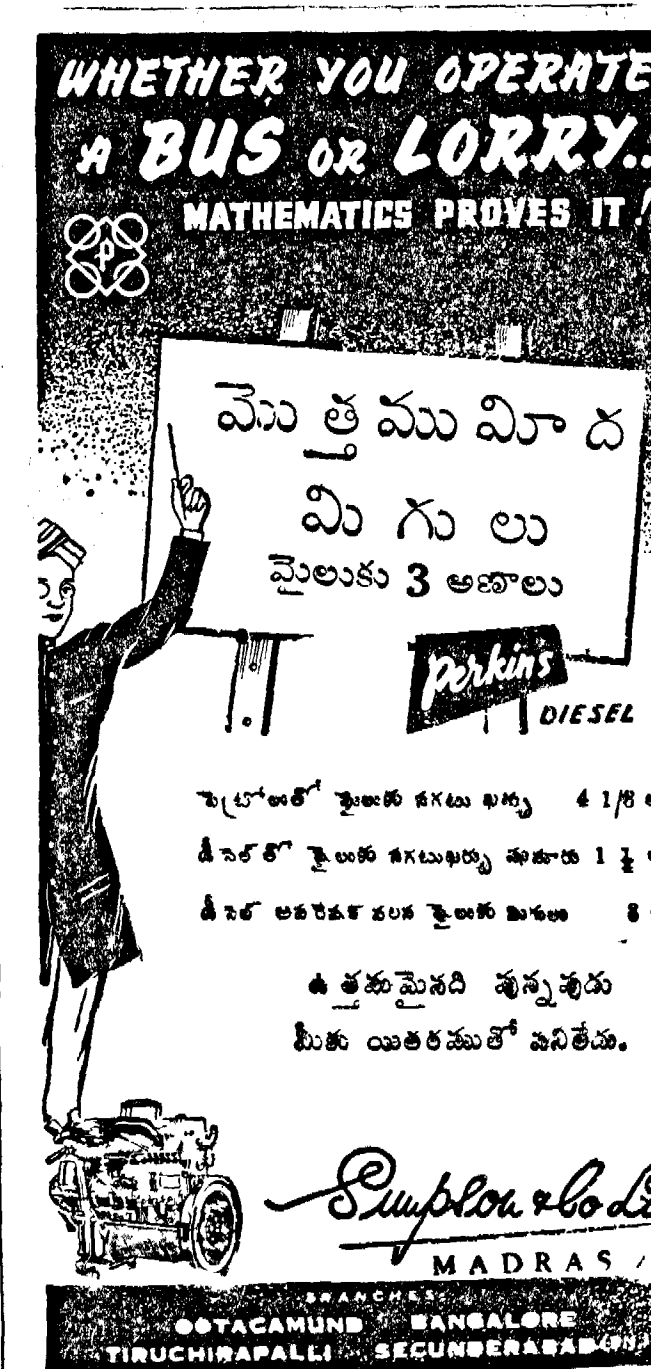 WHETHER YOU OPERATE
A BUS OR LORRY..
MATHEMATICS PROVES IT!
P
మొత్తముమీద
మిగులు
మైలుకు 3 అణాలు
Perkins
DIESEL
పెట్రోలుతో మైలుకు సగటు ఖర్చు 4 1/8
డీసెల్ తో మైలుకు సగటుఖర్చు సుమారు 1 1/4
డీసెల్ అమరికవలన మైలుకు మిగులు 3
ఉత్తమమైనది వున్నపుడు
మీకు యితరముతో పనిలేదు.
Simpson & Co Ld
MADRAS
BRANCHES
OOTACAMUND BANGALORE
TIRUCHIRAPALLI SECUNDERABAD